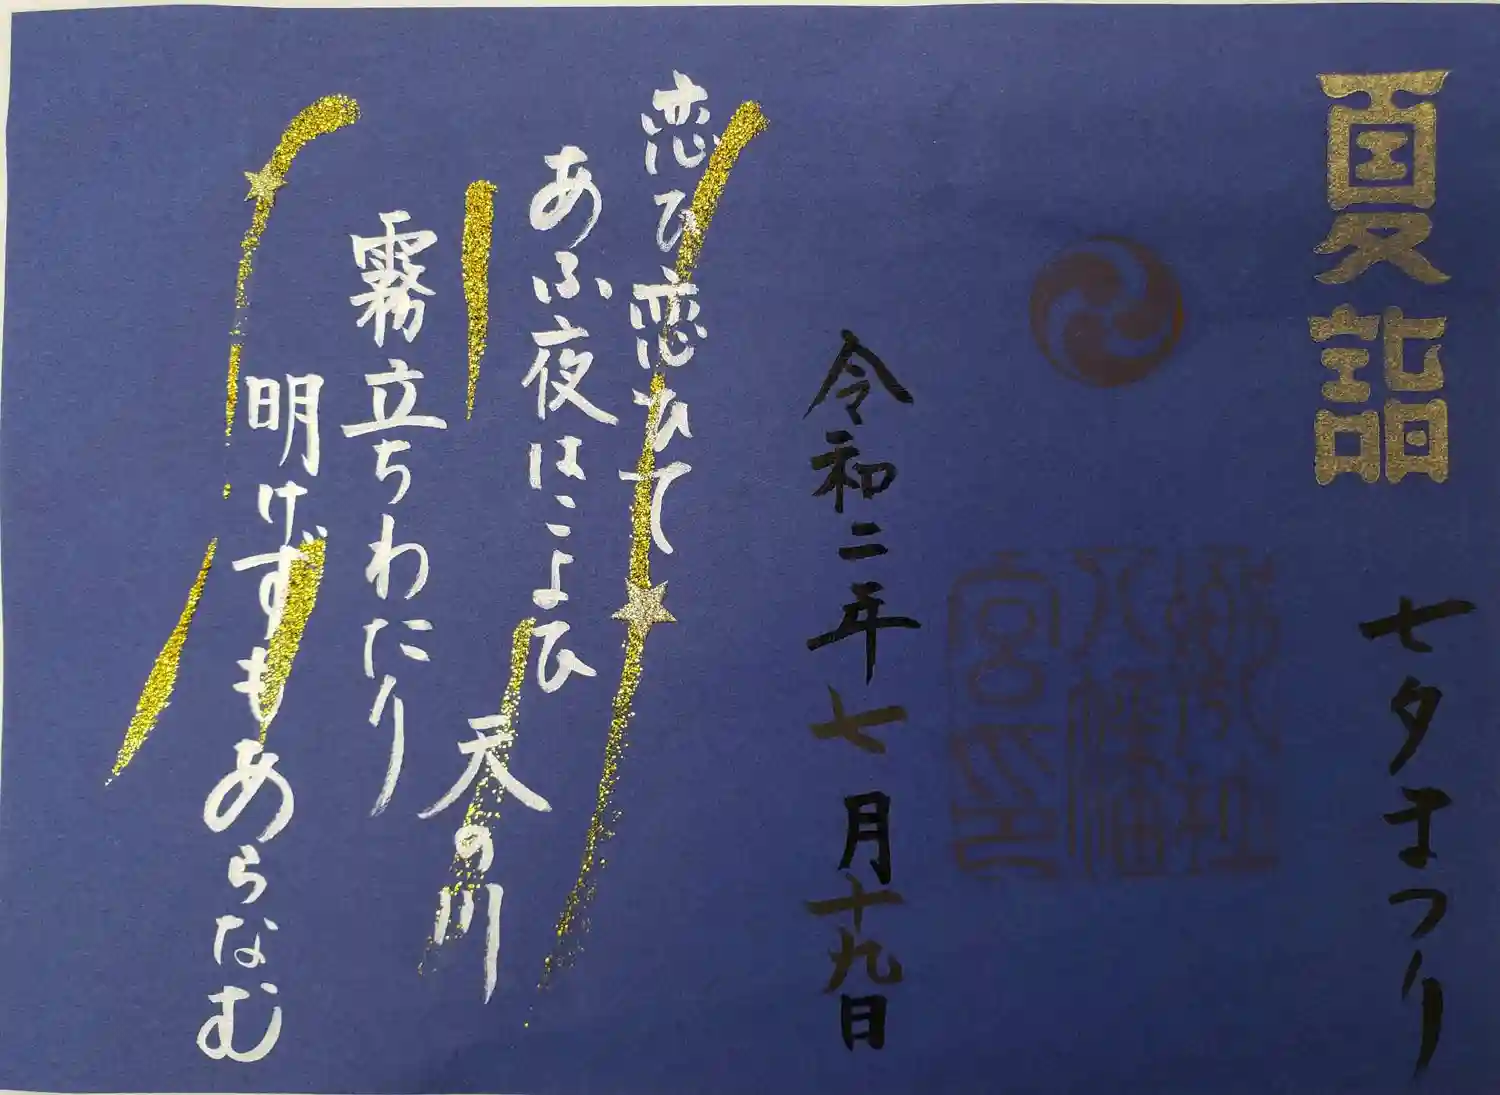 夏詣
七夕まつり
八幡
宮印
令和二年七月十九日
恋ひ恋ひて
あふ夜はこよひ
天の川
霧立ちわたり
明けずもあらなむ